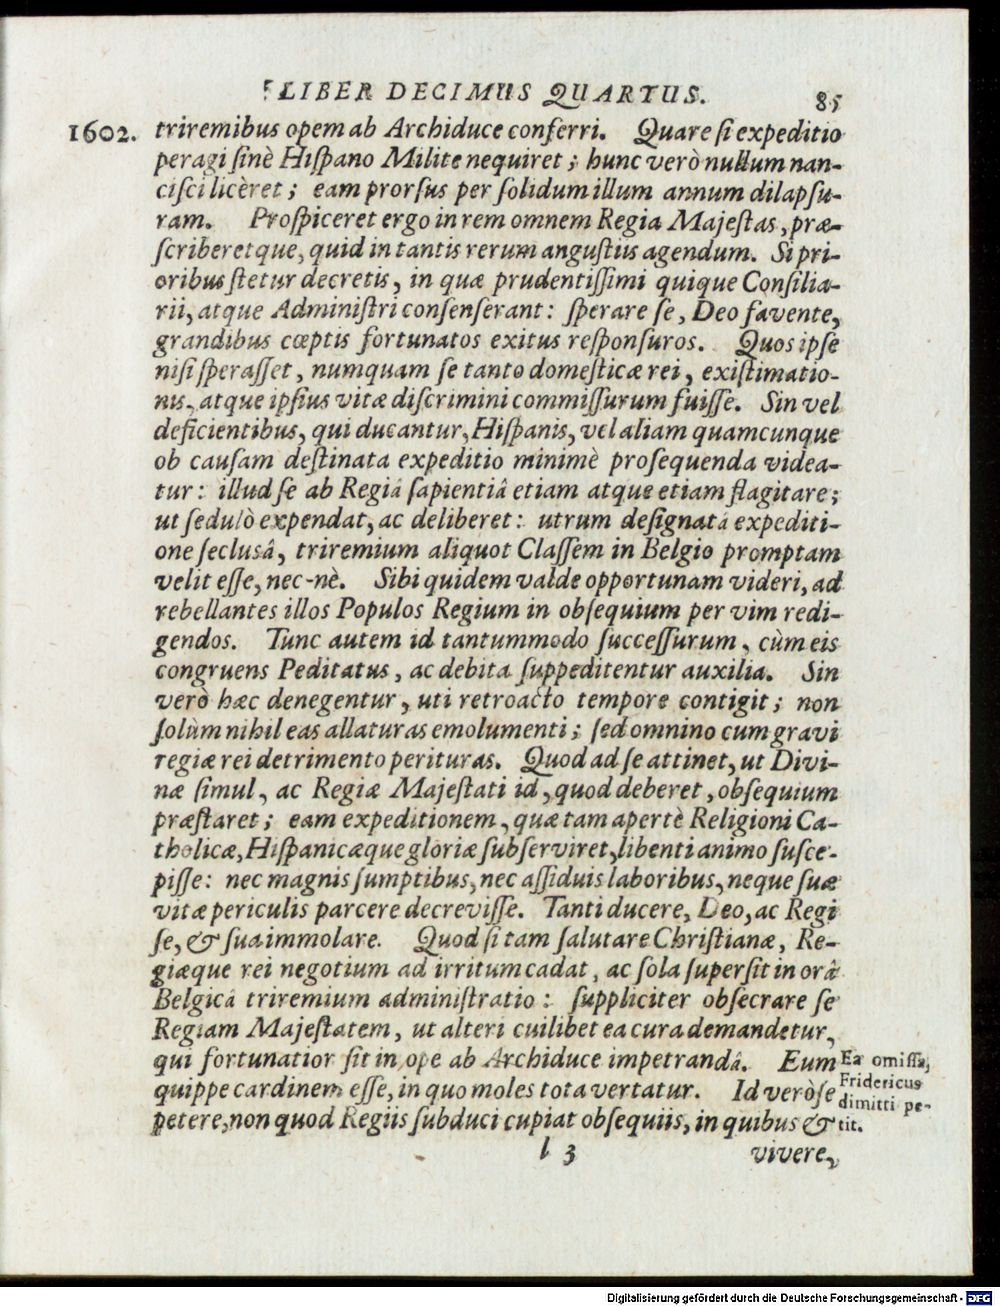 LIBER DECIMUS QUARTUS. 85
1602. triremibus opem ab Archiduce conferri. Quare ſi expeditio
peragi ſinè Hiſpano Milite nequiret; hunc verò nullum nan-
ciſci licèret; eam prorſus per ſolidum illum annum dilapſu-
ram. Proſpiceret ergo in rem omnem Regia Majeſtas, præ-
ſcriberetque, quid in tantis rerum anguſtiis agendum. Si pri-
oribus ſtetur decretis, in quæ prudentiſſimi quique Conſilia-
rii, atque Adminiſtri conſenſerant: ſperare ſe, Deo favente,
grandibus cœptis fortunatos exitus reſponſuros. Quos ipſe
niſi ſperaſſet, numquam ſe tanto domeſticæ rei, exiſtimatio-
nis, atque ipſius vitæ diſcrimini commiſſurum fuiſſe. Sin vel
deficientibus, qui ducantur, Hiſpanis, vel aliam quamcunque
ob cauſam deſtinata expeditio minimè proſequenda videa-
tur: illud ſe ab Regiâ ſapientiâ etiam atque etiam flagitare;
ut ſedulò expendat, ac deliberet: utrum deſignatâ expediti-
one ſecluſâ, triremium aliquot Claſſem in Belgio promptam
velit eſſe, nec-nè. Sibi quidem valde opportunam videri, ad
rebellantes illos Populos Regium in obſequium per vim redi-
gendos. Tunc autem id tantummodo ſucceſſurum, cùm eis
congruens Peditatus, ac debita ſuppeditentur auxilia. Sin
verò hæc denegentur, uti retroacto tempore contigit; non
ſolùm nihil eas allaturas emolumenti; ſed omnino cum gravi
regiæ rei detrimento perituras. Quod ad ſe attinet, ut Divi-
næ ſimul, ac Regiæ Majeſtati id, quod deberet, obſequium
præſtaret; eam expeditionem, quæ tam apertè Religioni Ca-
tholicæ, Hiſpanicæque gloriæ ſubſerviret, libenti animo ſuſce-
piſſe: nec magnis ſumptibus, nec aſſiduis laboribus, neque ſuæ
vitæ periculis parcere decreviſſe. Tanti ducere, Deo, ac Regi
ſe, & ſua immolare. Quod ſi tam ſalutare Chriſtianæ, Re-
giæque rei negotium ad irritum cadat, ac ſola ſuperſit in orâ
Belgicâ triremium adminiſtratio: ſuppliciter obſecrare ſe
Regiam Majeſtatem, ut alteri cuilibet ea cura demandetur,
qui fortunatior ſit in ope ab Archiduce impetrandâ. Eum
quippe cardinem eſſe, in quo moles tota vertatur. Id verò ſe
petere, non quod Regiis ſubduci cupiat obſequiis, in quibus &
Ea omiſſa,
Fridericus
dimitti pe-
tit.
l 3 vivere,
Digitalisierung gefördert durch die Deutsche Forschungsgemeinschaft - DFG